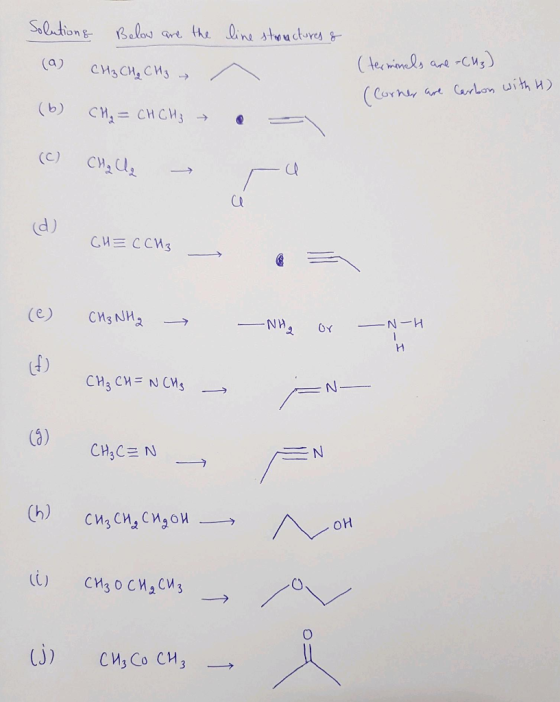 Solutions Below are the line structures :
(a) CH3CH2CH3 → (terminals are -CH3)
(Corner are Carbon with H)
(b) CH2 = CHCH3 →
(c) CH2Cl2 → Cl
Cl
(d) CH≡CCH3 →
(e) CH3NH2 → —NH2 Or —N-H
H
(f) CH3CH=NCH3 → N
(g) CH3C≡N → N
(h) CH3CH2CH2OH → OH
(i) CH3OCH2CH3 → O
(j) CH3CoCH3 → O